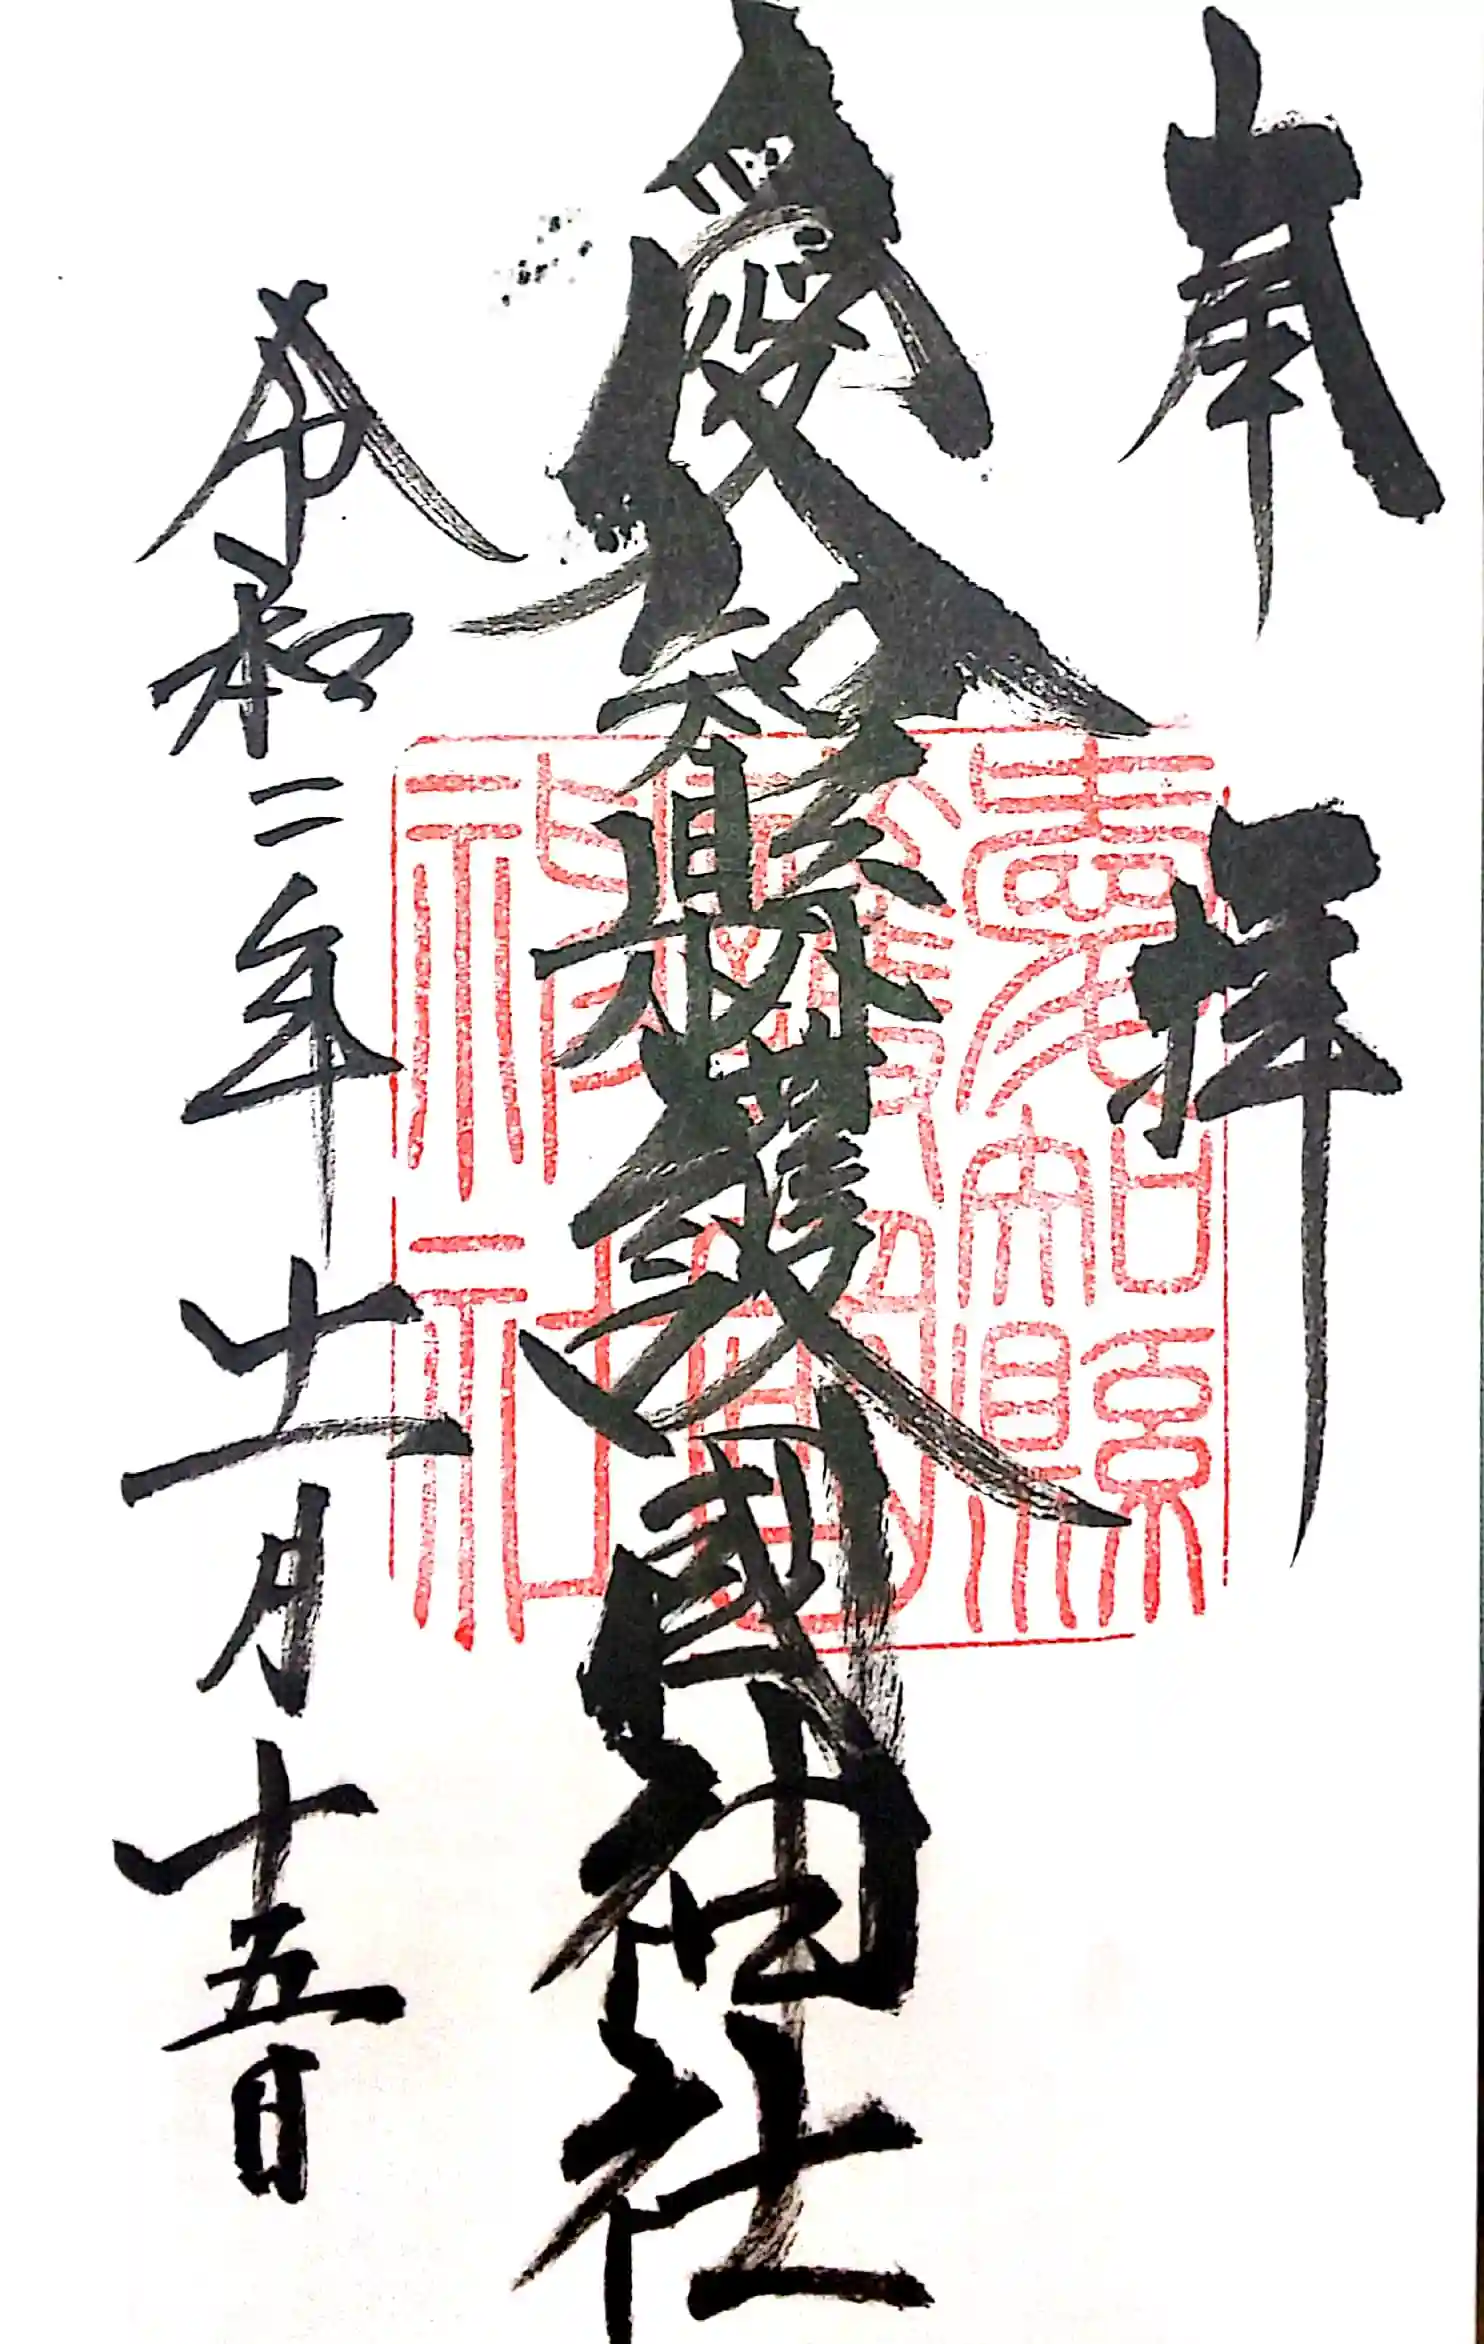 奉拝
愛知縣護國神社
愛知縣
護國
神社
令和二年十一月十五日